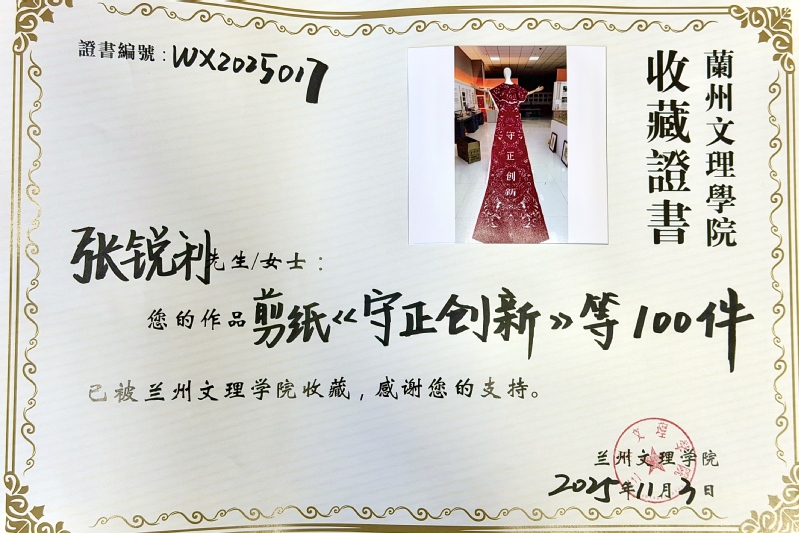 證書編號:WX2025017
蘭州文理學院
收藏證書
守正创新
张锐利先生/女士:
您的作品剪纸《守正创新》等100件
已被兰州文理学院收藏,感谢您的支持。
兰州文理学院
2025年11月3日